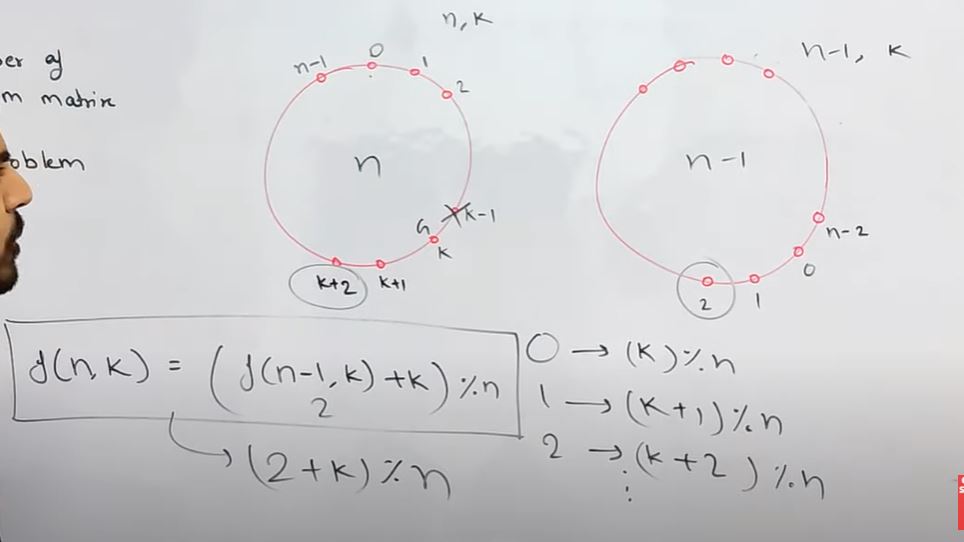 n, k
of
m matrix
oblem
n-1
0
1
2
n
k-1
G
k
k+2
k+1
n-1, k
n-1
n-2
0
1
2
f(n,k) = (f(n-1,k)+k)%n
2
(2+k)%n
0 → (k)%n
1 → (k+1)%n
2 → (k+2)%n
⋮